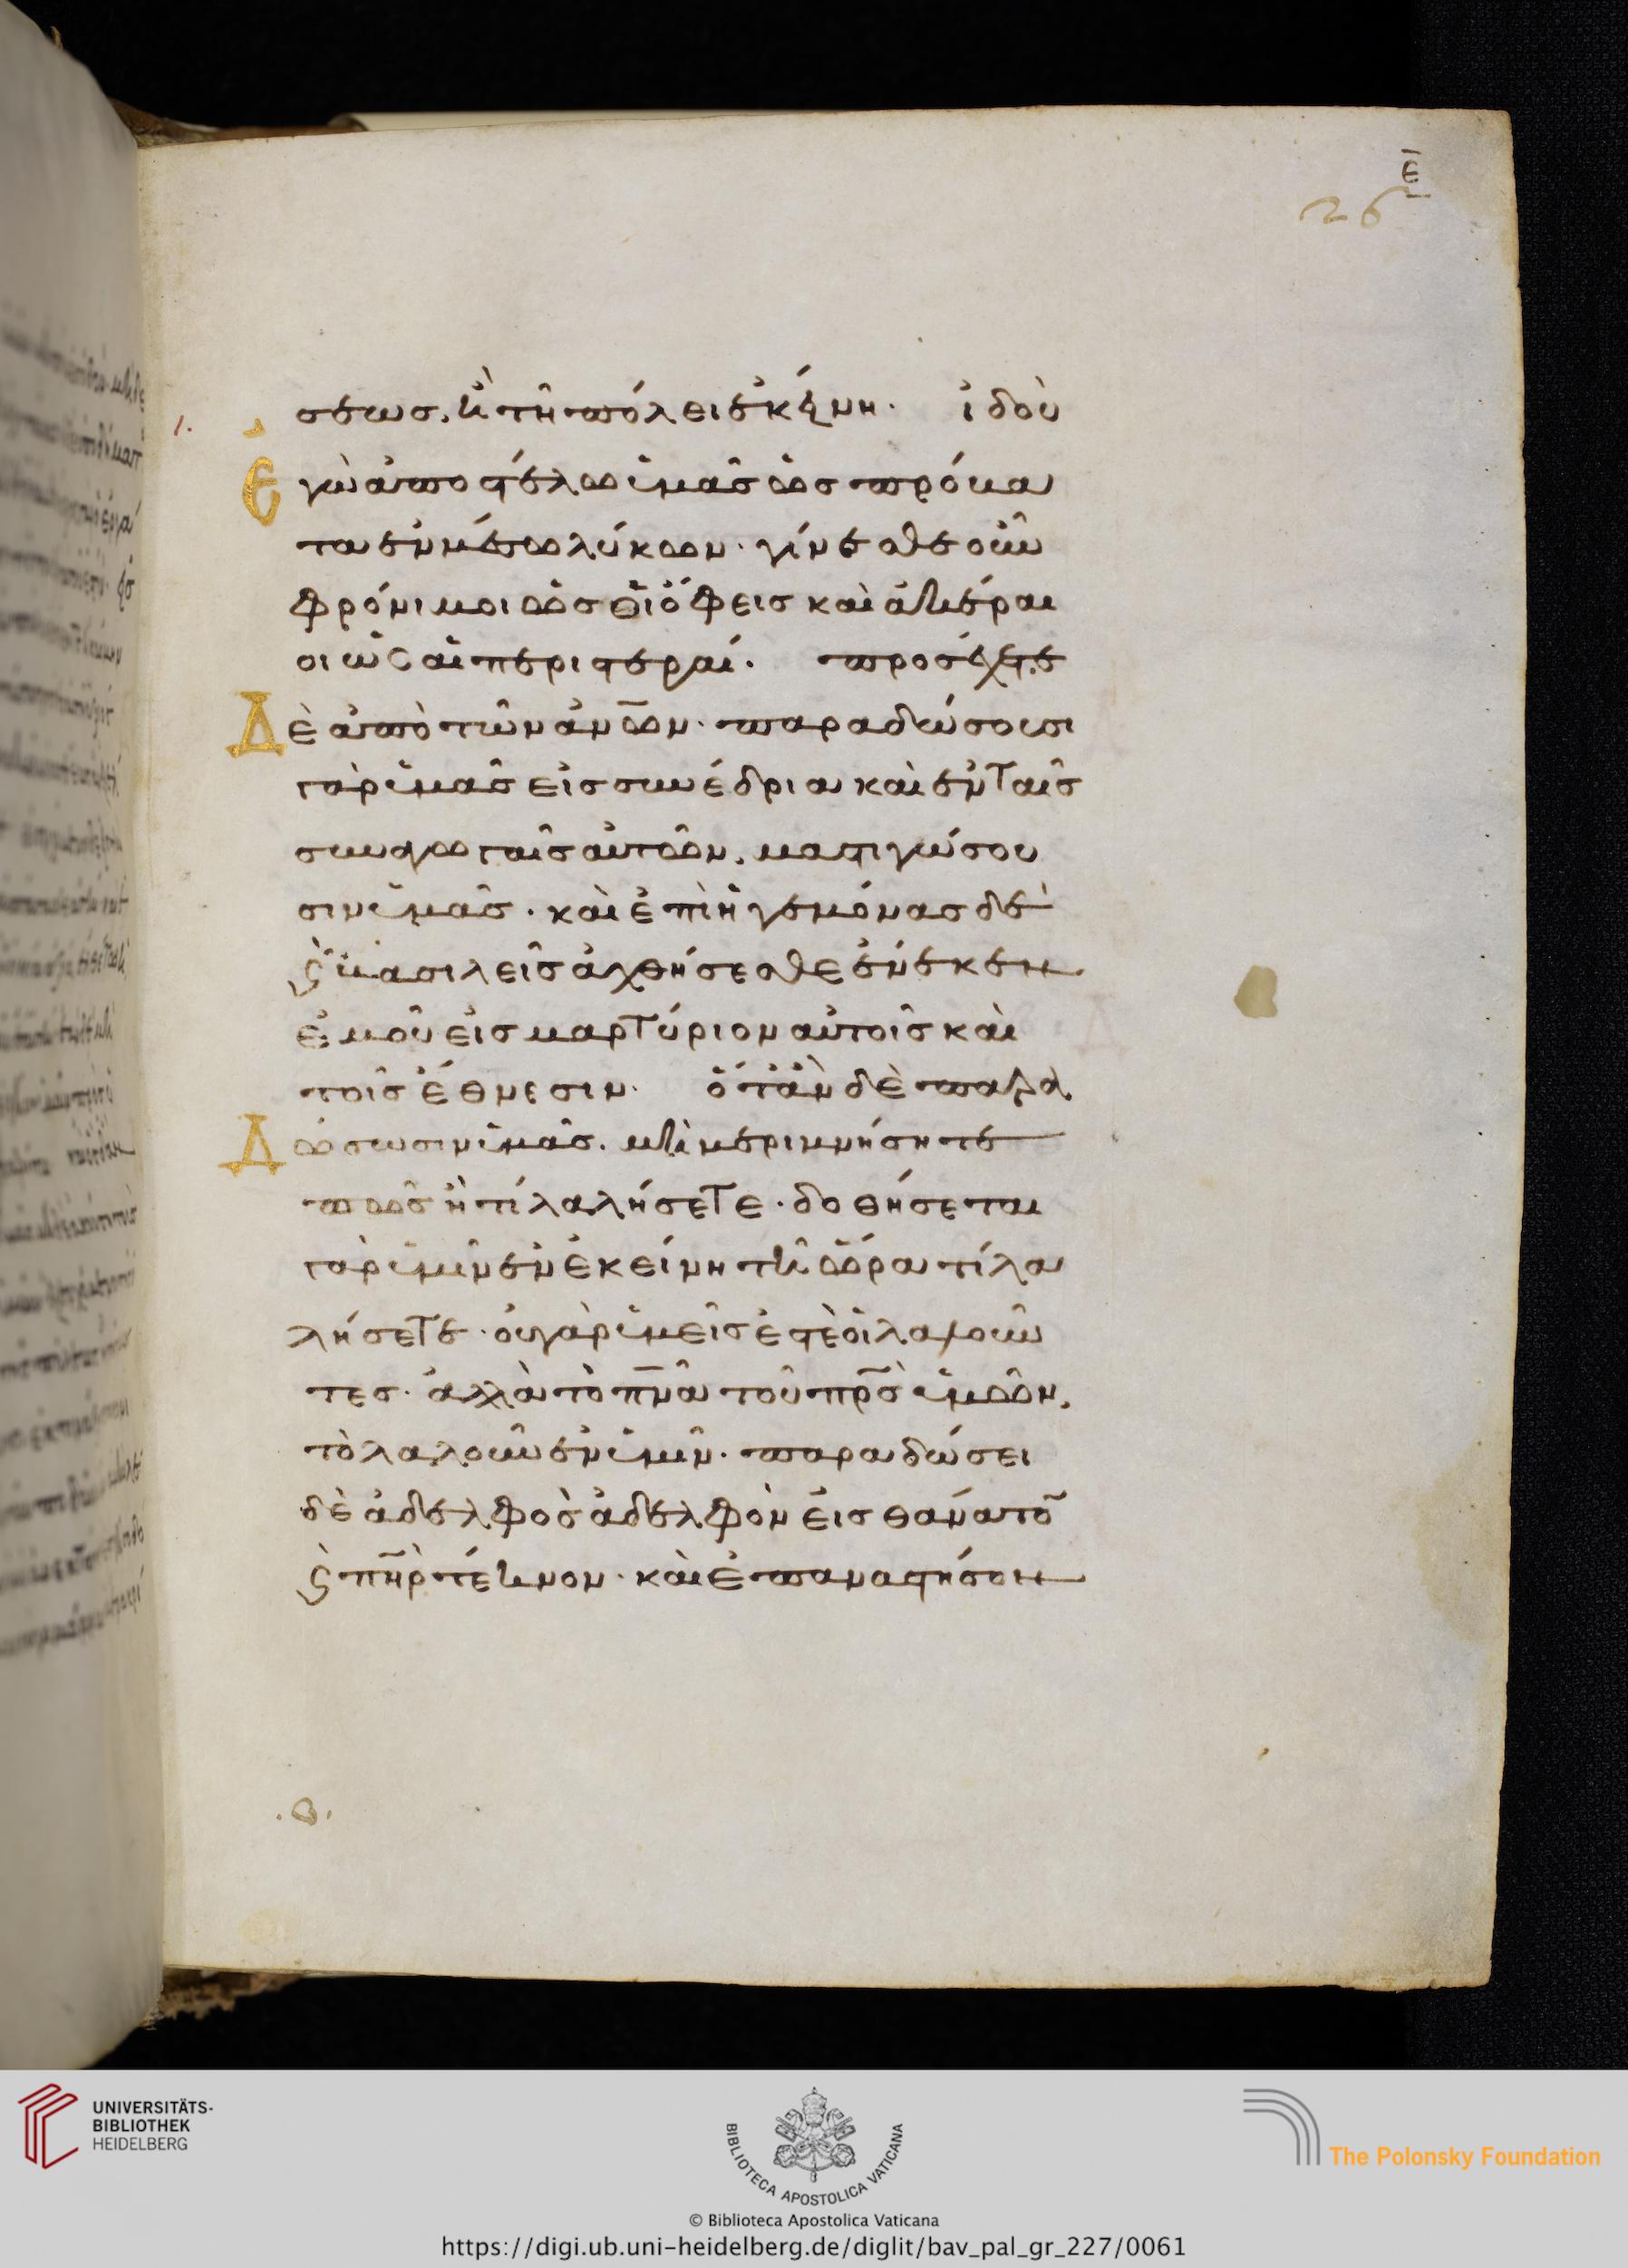 ε̄
26
σεως, ἢ τῆ πόλει ἐκείνη· ἰδοὺ
ἐγὼ ἀποστέλω ὑμᾶς ὡς πρόβα
τα ἐν μέσω λύκων· γίνεσθε οὖν
φρόνιμοι ὡς οἱ ὄφεις καὶ ἀκέραι
οι ὡς αἱ περιστεραί· προσέχετε
Δὲ ἀπὸ τῶν ἀν̅ων· παραδώσουσι
γὰρ ὑμᾶς εἰς συνέδρια καὶ ἐν ταῖς
συναγωγαῖς αὐτῶν, μαστιγώσου
σιν ὑμᾶς· καὶ ἐπὶ ἡγεμόνας δὲ
ϛ̀ βασιλεῖς ἀχθήσεσθε ἕνεκεν
ἐμοῦ εἰς μαρτύριον αὐτοῖς καὶ
τοῖς ἔθνεσιν· ὅτὰν δὲ παρα
Δώσωσιν ὑμᾶς, μὴ μεριμνήσητε
πῶς ἢ τί λαλήσετε· δοθήσεται
γὰρ ὑμῖν ἐν ἐκείνη τῆ ὥρα τί λα
λήσετε· οὐ γὰρ ὑμεῖς ἐστὲ οἱ λαλοῦν
τες· ἀλλὰ τὸ πν̅α τοῦ πρ̅ς ὑμῶν,
τὸ λαλοῦν ἐν ὑμῖν· παραδώσει
δὲ ἀδελφὸς ἀδελφὸν εἰς θάνατο̅
ϛ̀ πη̅ρ τέκνον· καὶ ἐπαναστήσον
UNIVERSITÄTS-
BIBLIOTHEK
HEIDELBERG
BIBLIOTECA APOSTOLICA VATICANA
The Polonsky Foundation
© Biblioteca Apostolica Vaticana
https://digi.ub.uni-heidelberg.de/diglit/bav_pal_gr_227/0061